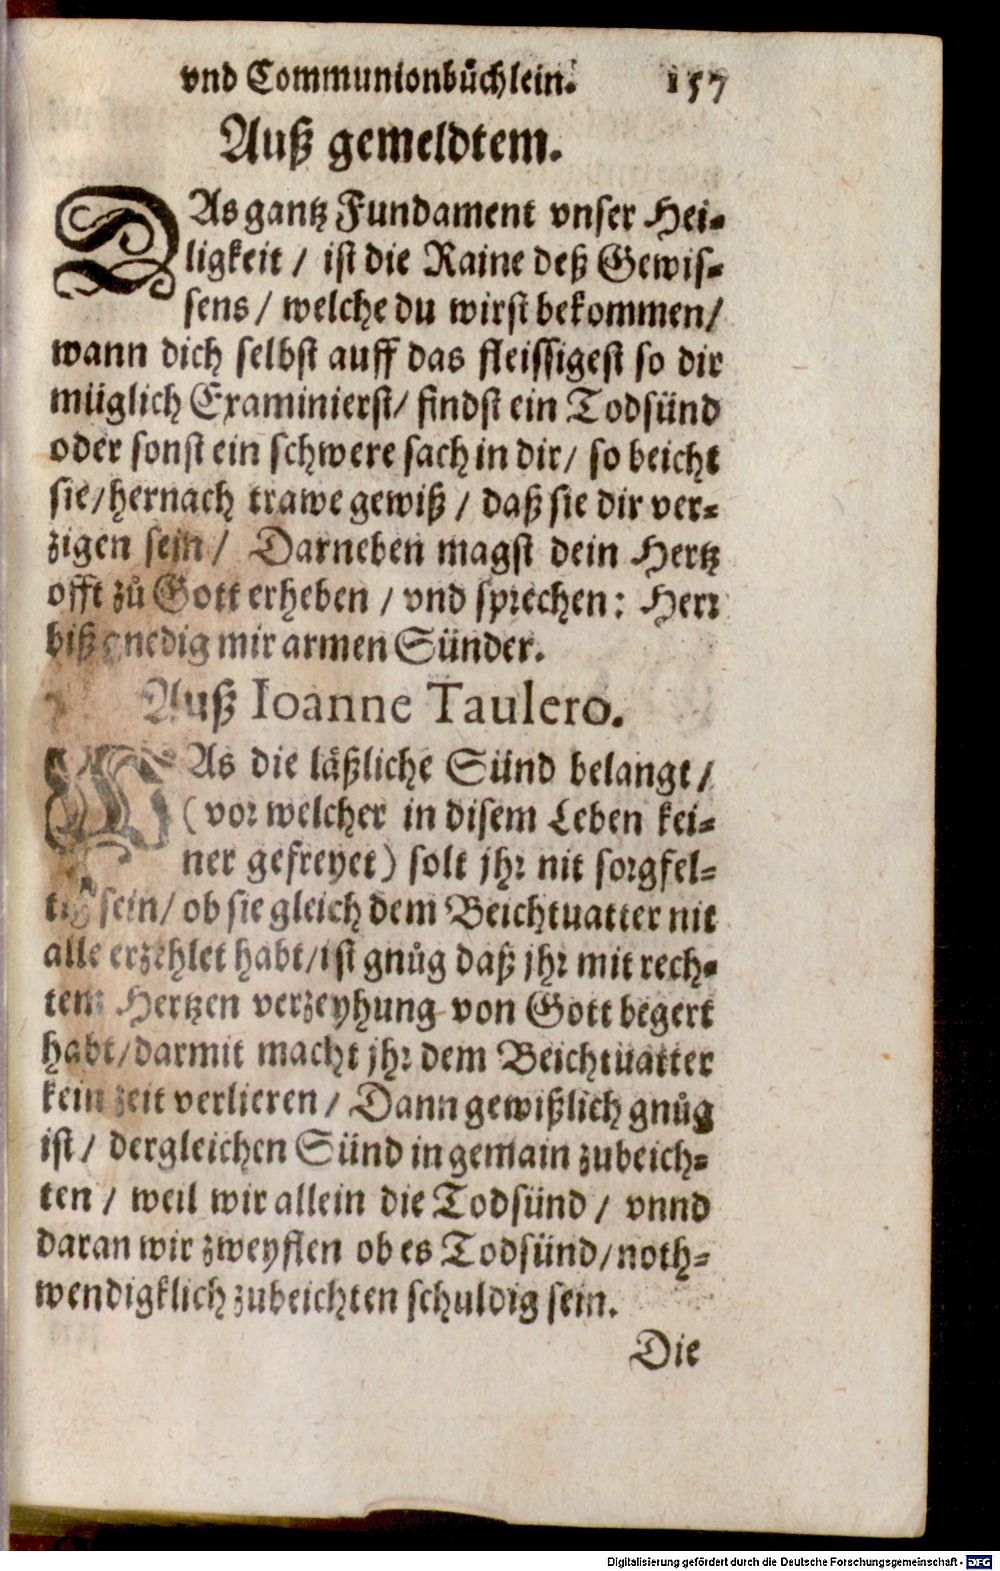 vnd Communionbůchlein. 157
Auß gemeldtem.
DAs gantz Fundament vnser Hei-
ligkeit / ist die Raine deß Gewis-
sens / welche du wirst bekommen /
wann dich selbst auff das fleissigest so dir
müglich Examinierst / findst ein Todsünd
oder sonst ein schwere sach in dir / so beicht
sie / hernach trawe gewiß / daß sie dir ver-
zigen sein / Darneben magst dein Hertz
offt zů Gott erheben / vnd sprechen: Herr
biß gnedig mir armen Sünder.
Auß Ioanne Taulero.
WAs die läßliche Sünd belangt /
(vor welcher in disem Leben kei-
ner gefreyet) solt jhr nit sorgfel-
tig sein / ob sie gleich dem Beichtuatter nit
alle erzehlet habt / ist gnůg daß jhr mit rech-
tem Hertzen verzeyhung von Gott begert
habt / darmit macht jhr dem Beichtuatter
kein zeit verlieren / Dann gewißlich gnůg
ist / dergleichen Sünd in gemain zubeich-
ten / weil wir allein die Todsünd / vnnd
daran wir zweyflen ob es Todsünd / noth-
wendigklich zubeichten schuldig sein.
Die
Digitalisierung gefördert durch die Deutsche Forschungsgemeinschaft - DFG